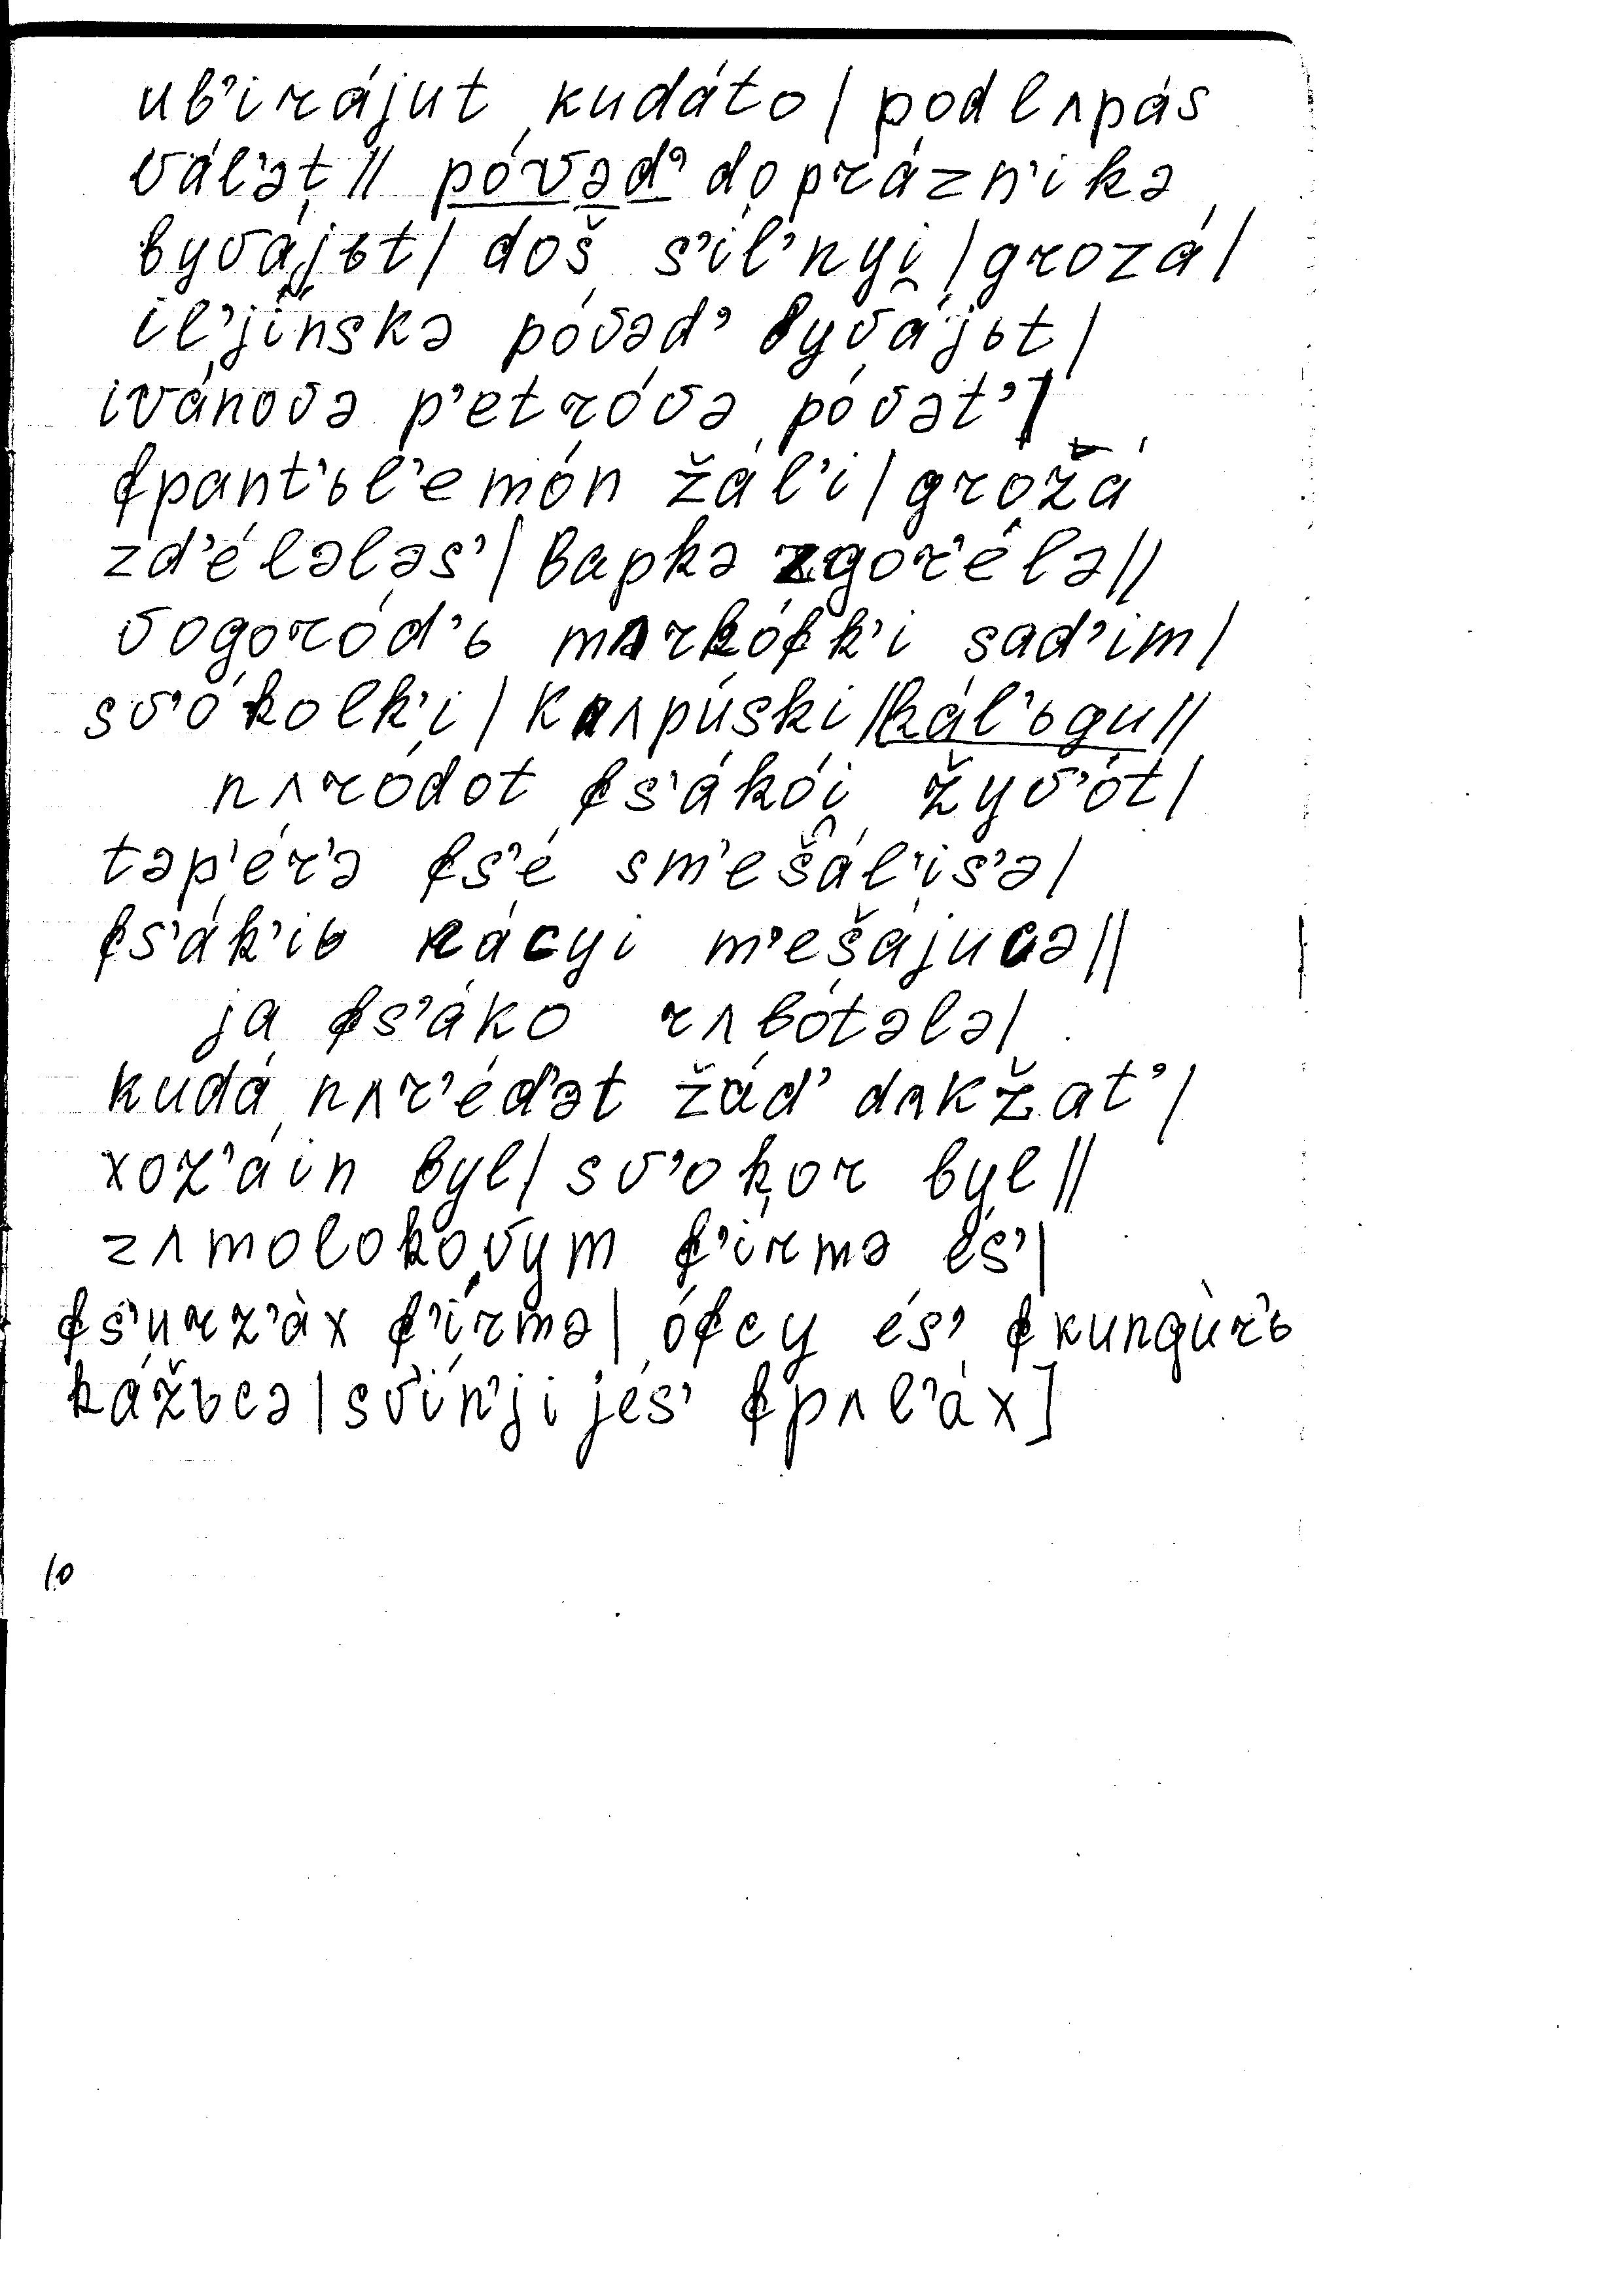 ub’irájut kudáto | podlʌpás
vál’ət || póvəd’ doprázn’ikə
byvájьt | doš s’íl’nyi̯ | grozá |
il’jínskə póvəd’ byvájьt |
ivánovə p’etróvə póvət’ |
fpant’ьl’emón žál’i | grožá
zd’élələs’ | bapkə zgor’élə ||
vogoród’ь mʌrkófk’i sad’im |
sv’ókolk’i | kʌpúski | kál’ьgu ||
nʌródot fs’ákói̯ žyv’ót |
təp’ér’ə fs’é sm’ešál’is’ə |
fs’ák’iь nácyi m’ešájucə ||
ja fs’áko rʌbótələ |
kudá nʌr’éd’ət žád’ dʌkžat’ |
xoz’áin byl | sv’okor byl ||
zʌmolokovym f’írmə és’ |
fs’urz’àx f’írmə | ófcy és’ fkungùr’ь
kážьcə | sv’ín’ji jés’ fpʌl’áx ]
10